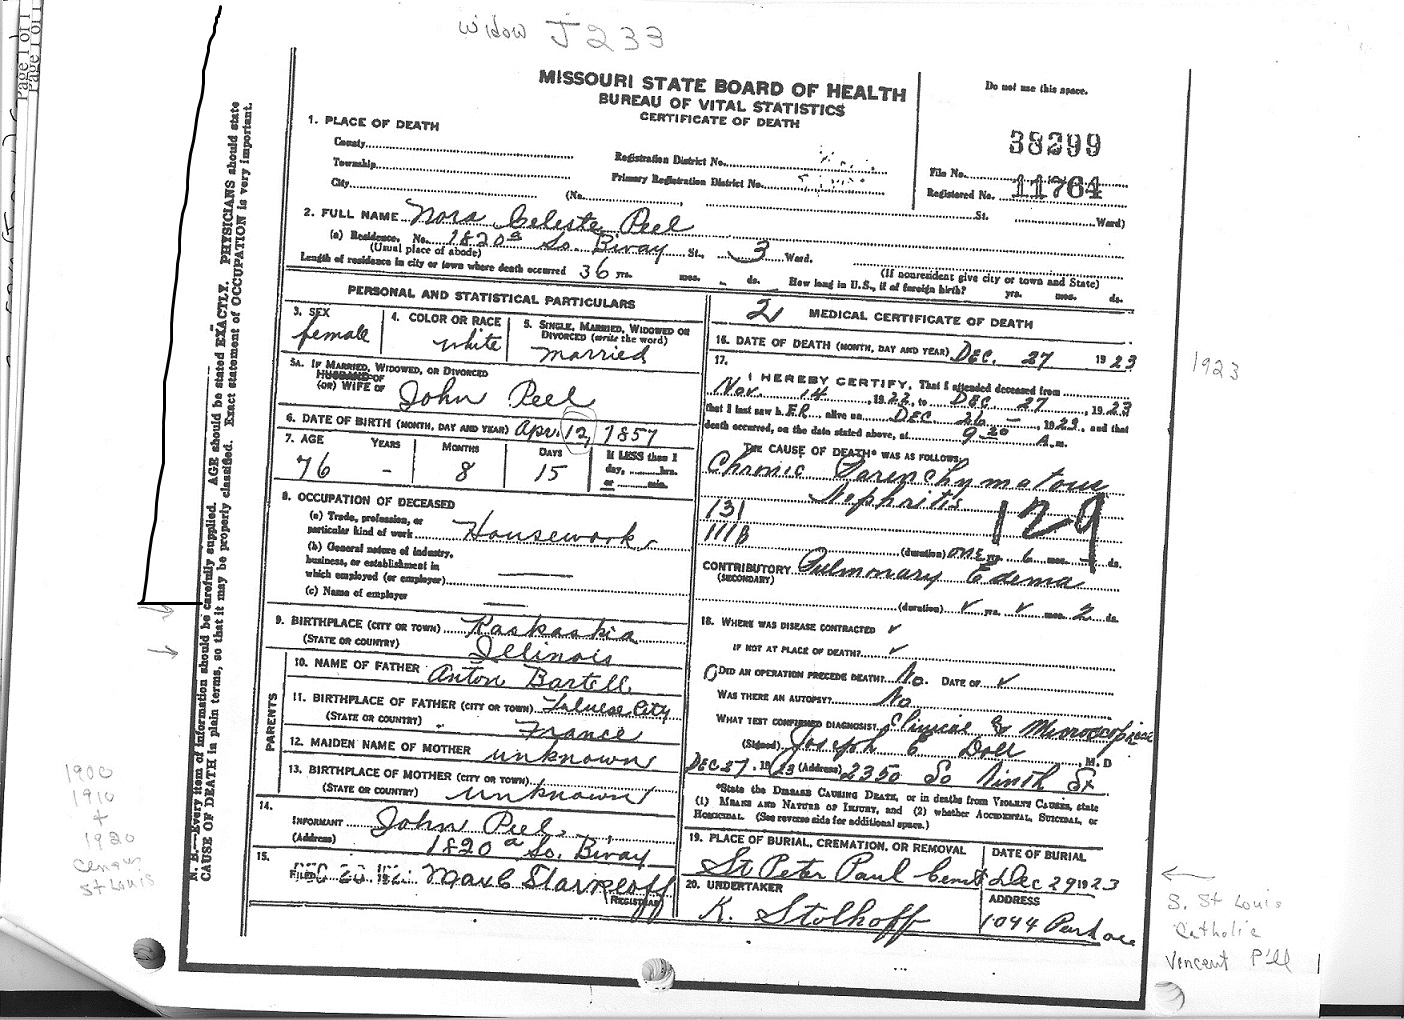 widow J233
Page 1 of 1
Page 1 of 1
MISSOURI STATE BOARD OF HEALTH
BUREAU OF VITAL STATISTICS
CERTIFICATE OF DEATH
Do not use this space.
38299
1. PLACE OF DEATH
County
Township
City
(No.
St.
Ward)
Registration District No.
Primary Registration District No.
File No.
Registered No. 11764
2. FULL NAME Nora Celeste Peel
(a) Residence. No. 1820a So. Bway St., 3 Ward.
(Usual place of abode)
(If nonresident give city or town and State)
Length of residence in city or town where death occurred 36 yrs. mos. ds. How long in U.S., if of foreign birth? yrs. mos. ds.
PERSONAL AND STATISTICAL PARTICULARS
3. SEX
female
4. COLOR OR RACE
white
5. SINGLE, MARRIED, WIDOWED OR
DIVORCED (write the word)
married
5A. IF MARRIED, WIDOWED, OR DIVORCED
HUSBAND OF
(OR) WIFE OF John Peel
6. DATE OF BIRTH (MONTH, DAY AND YEAR) Apr. 12, 1857
7. AGE YEARS MONTHS DAYS
76 - 8 15
If LESS than 1
day, hrs.
or min.
8. OCCUPATION OF DECEASED
(a) Trade, profession, or
particular kind of work Housework
(b) General nature of industry,
business, or establishment in
which employed (or employer)
(c) Name of employer
9. BIRTHPLACE (CITY OR TOWN) Kaskaskia
(STATE OR COUNTRY) Illinois
PARENTS
10. NAME OF FATHER Anton Bartell
11. BIRTHPLACE OF FATHER (CITY OR TOWN) City
(STATE OR COUNTRY) France
12. MAIDEN NAME OF MOTHER unknown
13. BIRTHPLACE OF MOTHER (CITY OR TOWN)
(STATE OR COUNTRY) unknown
14.
INFORMANT John Peel
(Address) 1820a So. Bway
15.
FILED Max C Starkloff
REGISTRAR
2 MEDICAL CERTIFICATE OF DEATH
16. DATE OF DEATH (MONTH, DAY AND YEAR) Dec. 27 1923
17.
I HEREBY CERTIFY, That I attended deceased from
Nov. 14, 1922, to Dec 27, 1923
that I last saw hER alive on DEC 26 -, 1923, and that
death occurred, on the date stated above, at 9 30 A.m.
THE CAUSE OF DEATH* WAS AS FOLLOWS:
Chronic Parenchymatous
Nephritis
131
111B
129
(duration) one yrs. 6 mos. ds.
CONTRIBUTORY Pulmonary Edema
(SECONDARY)
(duration) ✓ yrs. ✓ mos. 2 ds.
18. WHERE WAS DISEASE CONTRACTED ✓
IF NOT AT PLACE OF DEATH? ✓
DID AN OPERATION PRECEDE DEATH? No. DATE OF ✓
WAS THERE AN AUTOPSY? No
WHAT TEST CONFIRMED DIAGNOSIS? Clinical & Microscopical
(Signed) Joseph C Doll, M. D
DEC 27, 1923 (Address) 2350 So Ninth St
*State the DISEASE CAUSING DEATH, or in deaths from VIOLENT CAUSES, state
(1) MEANS AND NATURE OF INJURY, and (2) whether ACCIDENTAL, SUICIDAL, or
HOMICIDAL. (See reverse side for additional space.)
19. PLACE OF BURIAL, CREMATION, OR REMOVAL
St Peter Paul Cemt
DATE OF BURIAL
Dec 29 1923
20. UNDERTAKER
K. Stolhoff
ADDRESS
1044
N. B.—Every item of information should be carefully supplied. AGE should be stated EXACTLY. PHYSICIANS should state
CAUSE OF DEATH in plain terms, so that it may be properly classified. Exact statement of OCCUPATION is very important.
1923
1900
1910
+
1920
Census
St Louis
S. St Louis
Catholic
Vincent P'll